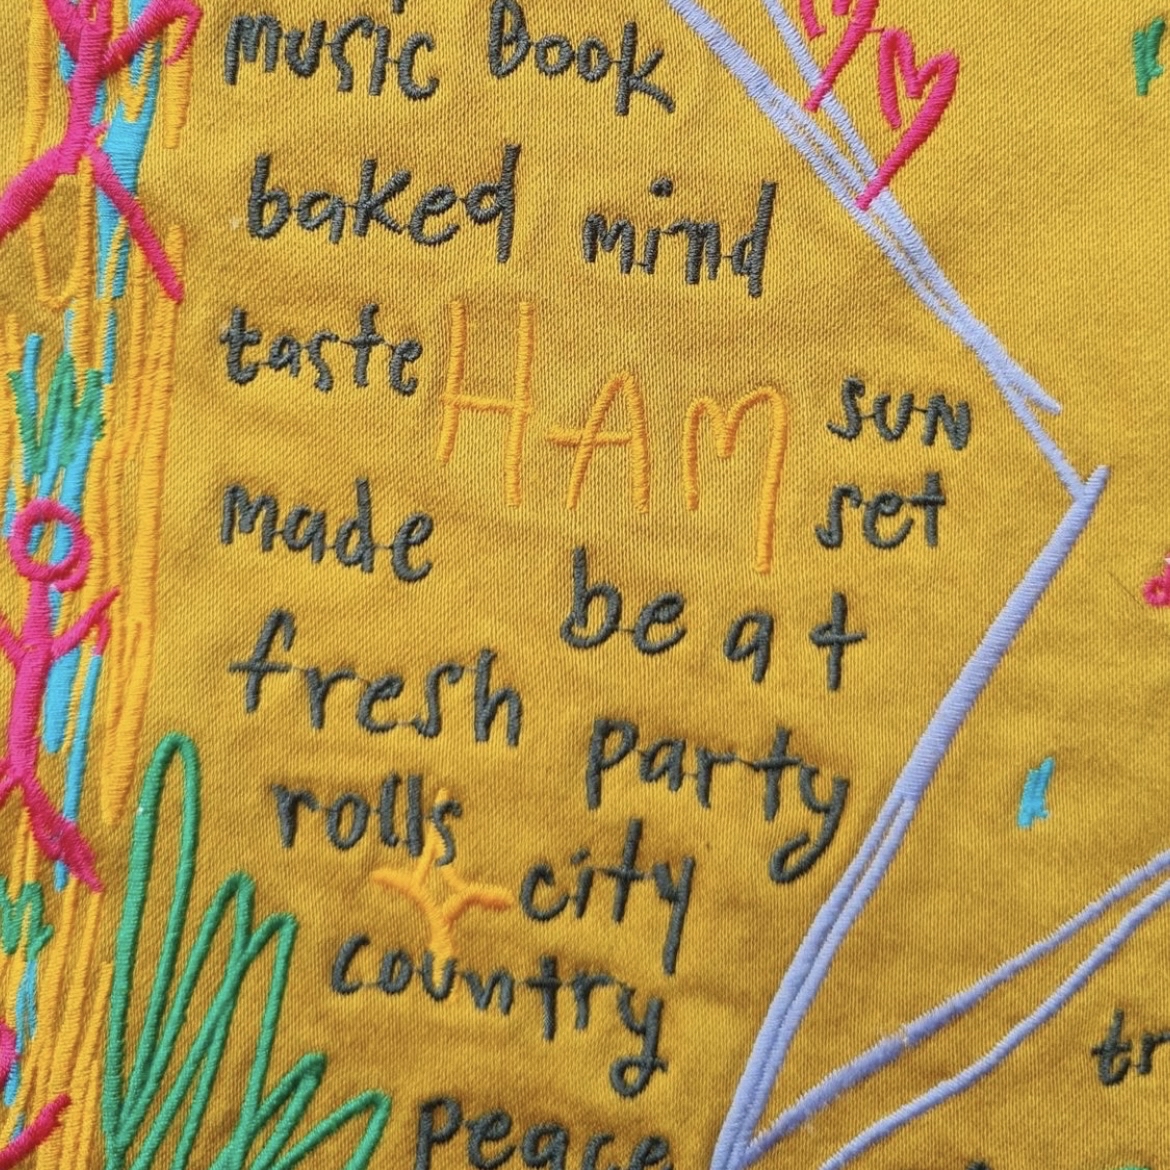 music Book
baked mind
taste HAM sun
made set
beat
fresh party
rolls city
country
peace